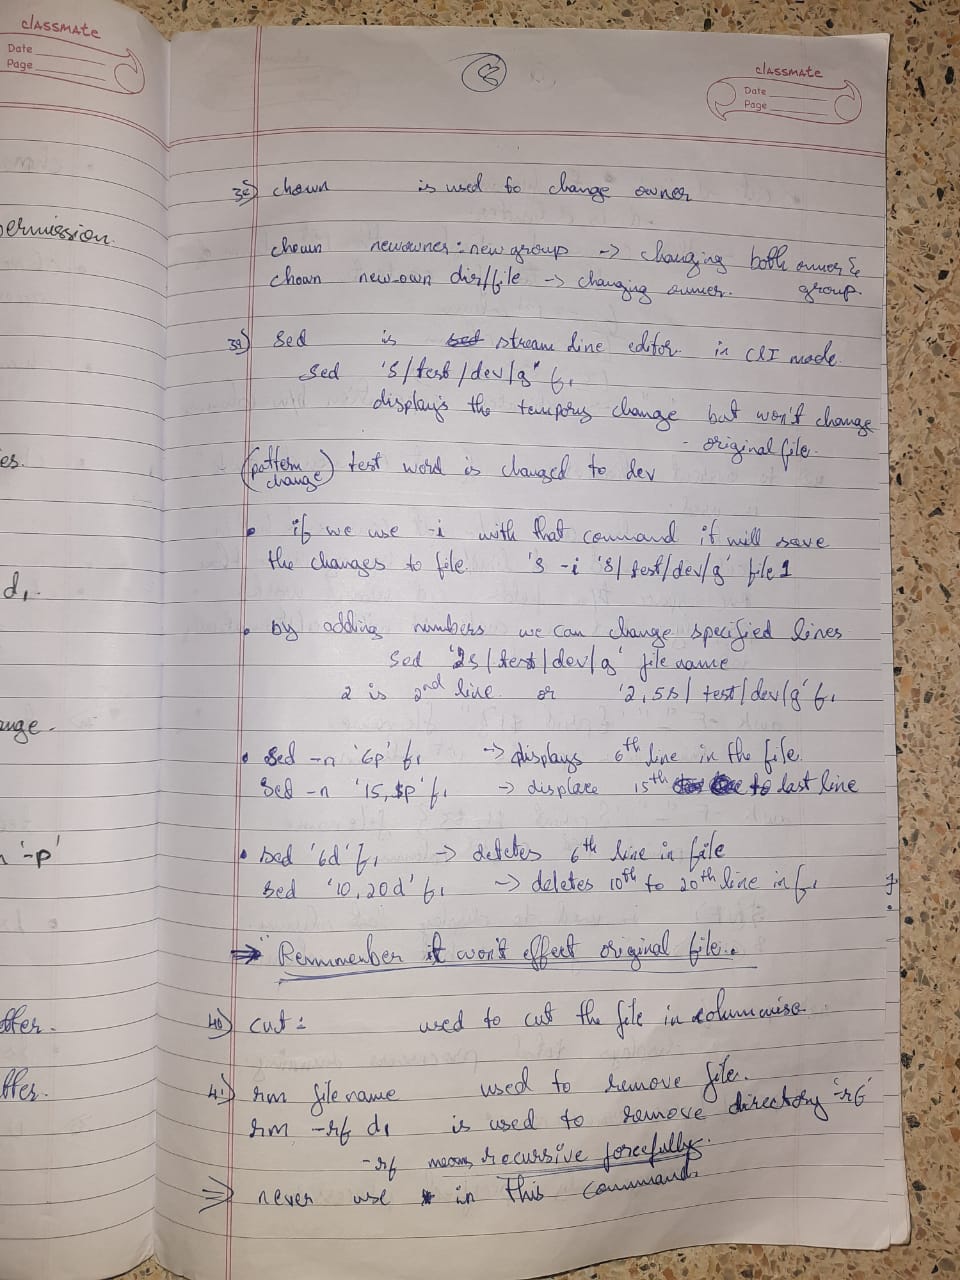 classmate
Date
Page
ermission.
es.
d1.
ange.
'-p'
ffer.
ffer.
classmate
Date
Page
38) chown is used to change owner
chown newowner:newgroup -> changing both owner &
group.
chown new-own dir/file -> changing owner.
39) sed is stream line editor in CLI mode.
sed 's/test/dev/g" f1
displays the tempory change but won't change
- original file.
(pattern change) test word is changed to dev
• if we use -i with that command it will save
the changes to file. 's -i 's/test/dev/g' file1
• by adding numbers we can change specified lines
sed '2s/test/dev/g' file name
2 is 2nd line or '2,5s/test/dev/g' f1
• sed -n '6p' f1 -> displays 6th line in the file.
sed -n '15,$p' f1 -> displace 15th to last line
• sed '6d' f1 -> deletes 6th line in file
sed '10,20d' f1 -> deletes 10th to 20th line in f1
=> Remmember it won't effect original file..
40) cut: used to cut the file in columnwise.
41) rm filename used to remove file.
rm -rf d1 is used to remove directory '-rf'
-rf means recursive forcefully.
=> never use * in this command.